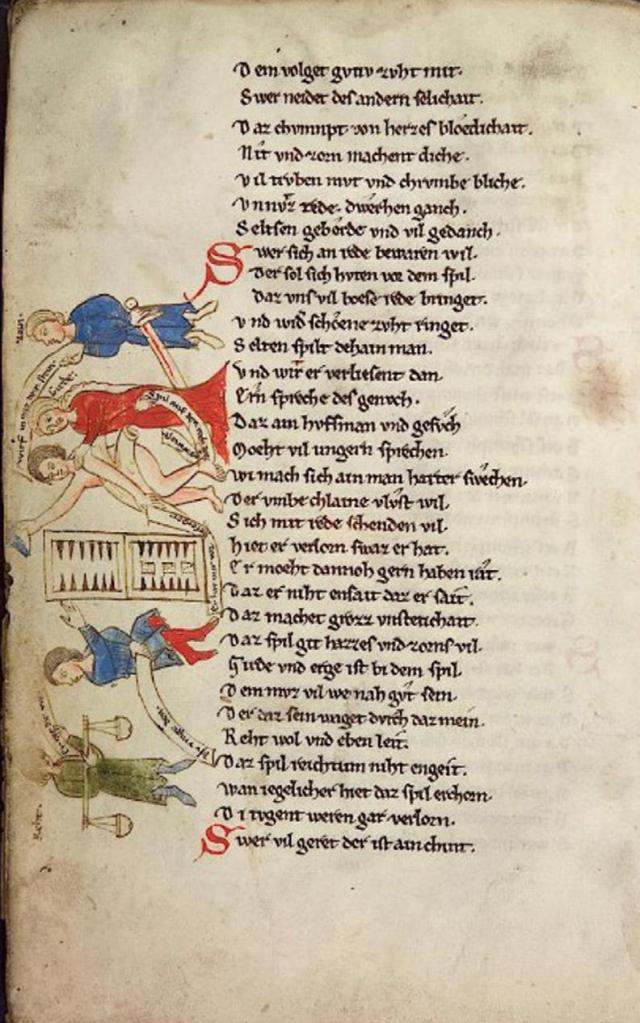 Dem volget gvtiv zvht mit.
Swer neidet des andern selichait.
Daz chvmupt von herzes bloedichait.
Nit vnd zorn machent diche.
Vil trvben mvt vnd chrvmbe bliche.
Vnnvz rede. dwerhen ganch.
Seltsen geberde vnd vil gedanch.
Swer sich an rede bewaren wil.
Der sol sich hvten vor dem spil.
Daz vns vil boese rede bringet.
Vnd wid schoene zvht ringet.
Selten spilt dehain man.
Vnd wirt er verliesent dan.
Ern spreche des genvch.
Daz ain hvffman vnd gefvch
Moeht vil ungern sprechen.
Wi mach sich ain man harter swechen.
Der vmbe chlaine vlvst wil.
Sich mit rede schenden vil.
Hiet er verlorn swaz er hat.
Er moeht dannoh gern haben rat.
Daz er niht ensait daz er sait.
Daz machet grozz vnstetichait.
Daz spil git hazzes vnd zorns vil.
Girde vnd erge ist bi dem spil.
Dem mvz vil we nah gvt sein.
Der daz sein waget dvrch daz mein.
Reht wol vnd eben leit.
Daz spil reichtum niht engeit.
Wan iegelicher hiet daz spil erchorn.
Di tvgent weren gar verlorn.
Swer vil geret der ist ain chint.
Zorn.
Reht.